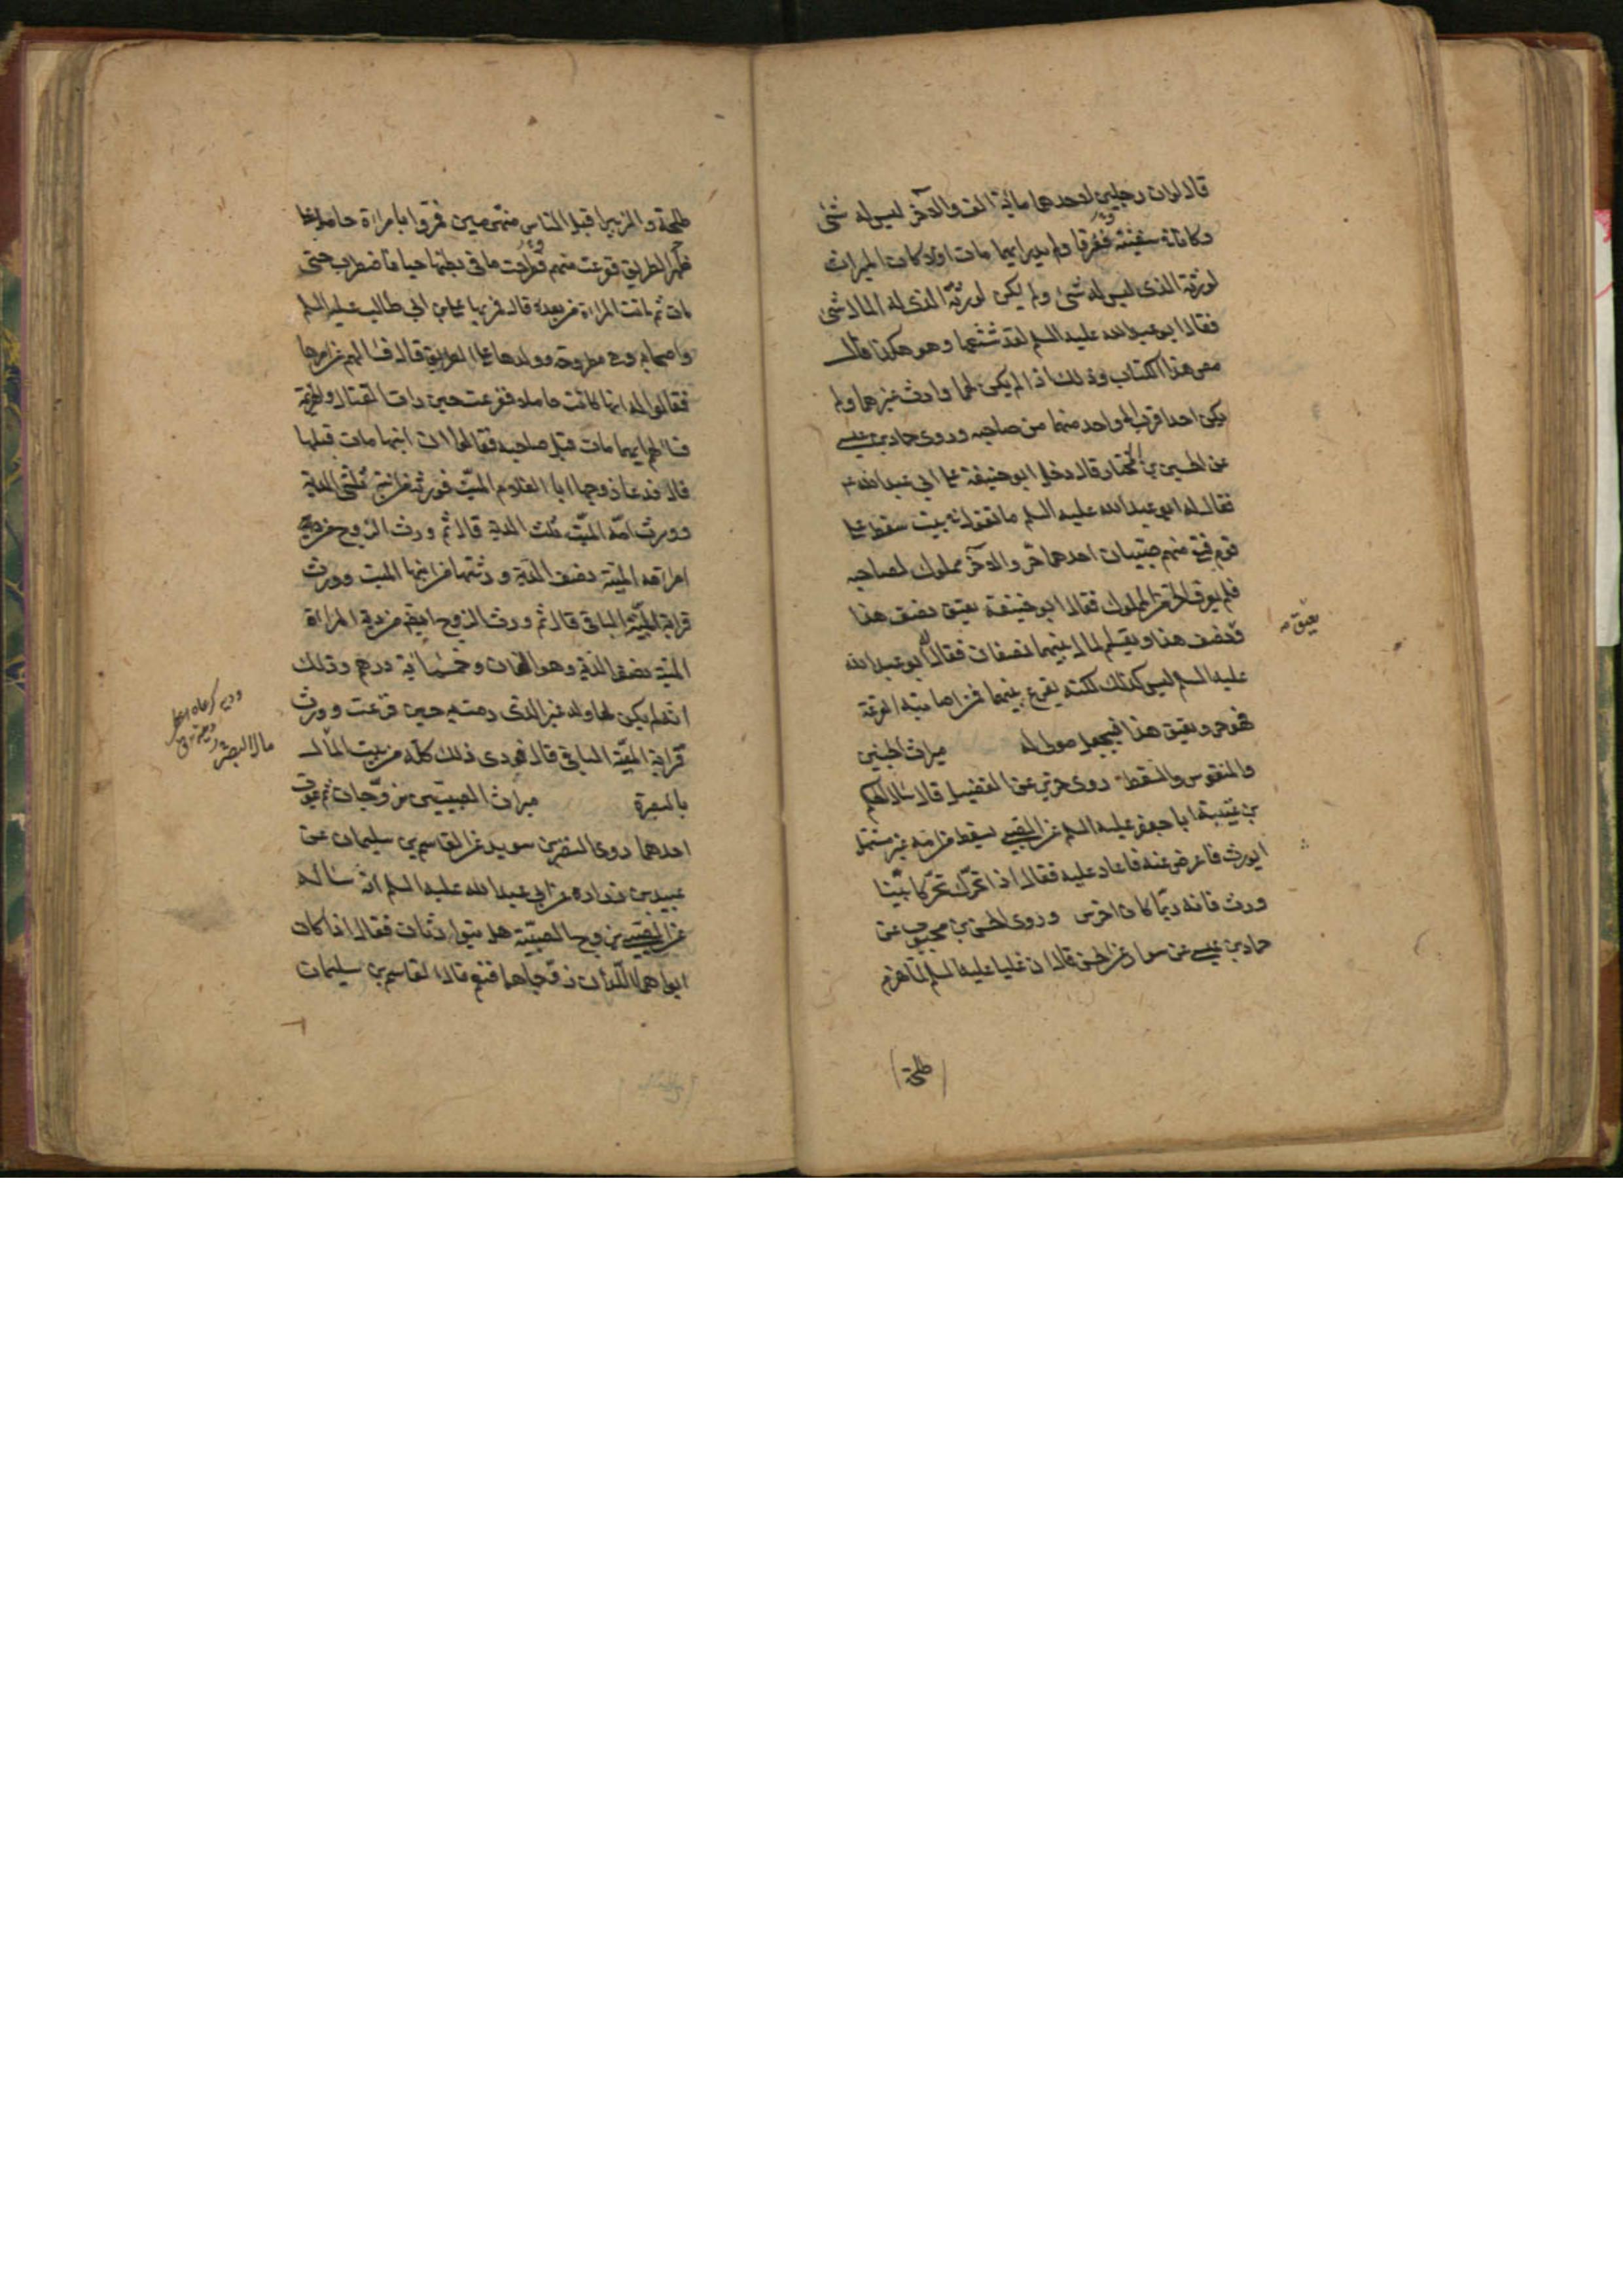 قال لو ان رجلين لاحدهما مائة الف والآخر ليس له شئ
وكانا في سفينة فغرقا ولم يدر ايهما مات اولا كان الميراث
لورثة الذى ليس له شئ ولم يكن لورثة الذى له المال شئ
فقال ابو عبد الله عليه السلم لقد شنعها وهو هكذا قال
مص هذا الكتاب وذلك اذا لم يكن لهما وارث غيرهما ولم
يكن احد اقرب الى واحد منهما من صاحبه وروى حماد بن عيسى
عن الحسين بن المختار قال دخل ابو حنيفة على ابى عبد الله ع
فقال له ابو عبد الله عليه السلم ما تقول فى بيت سقط على
قوم فبقى منهم صبيان احدهما حر والآخر مملوك لصاحبه
فلم يعرف الحر من المملوك فقال ابو حنيفة يعتق نصف هذا
ونصف هذا ويقسم المال بينهما نصفان فقال ابو عبد الله
عليه السلم ليس كذلك لكنه يقرع بينهما فمن اصابته القرعة
فهو حر ويعتق هذا فيجعل مولى له ميراث الجنين
والمنفوس والسقط روى حريز عن الفضيل قال سأل الحكم
بن عتيبة ابا جعفر عليه السلم عن الصبى يسقط من امه غير مستهل
ايورث فاعرض عنه فاعاد عليه فقال اذا تحرك تحركا بينا
ورث فانه ربما كان اخرس وروى الحسن بن محبوب عن
حماد بن عيسى عن سوار عن الحسن قال ان عليا عليه السلم لما هزم
(طلحة)
يعتق
طلحة والزبير اقبل الناس منهزمين فمروا بامراة حامل على
ظهر الطريق فزعت منهم فطرحت ما فى بطنها حيا فاضطرب حتى
مات ثم ماتت المراة من بعده قال فمر بها على بن ابى طالب عليه السلم
واصحابه وهى مطروحة وولدها على الطريق قال فسالهم عن امرها
فقالوا له انها كانت حاملا ففزعت حين رات القتال والهزيمة
فسالهم ايهما مات قبل صاحبه فقالوا ان ابنها مات قبلها
قال فدعا زوجها ابا الغلام الميت فورثه من ابنه ثلثى الدية
وورث امه الميت ثلث الدية قال ثم ورث الزوج من دية
امراته الميتة نصف الدية ورثتها من ابنها الميت وورث
قرابة الميتة الباقى قال ثم ورث الزوج ايضا من دية المراة
الميتة نصف الدية وهو الفان وخمسمائة درهم وذلك
انه لم يكن لها ولد غير الذى رمت به حين فزعت وورث
قرابة الميتة الباقى قال فودى ذلك كله من بيت المال
بالبصرة ميراث الصبيين يزوجان ثم يموت
احدهما روى النضر بن سويد عن القاسم بن سليمان عن
عبيد بن زرارة عن ابى عبد الله عليه السلم انه ساله
عن الصبى يزوج الصبية هل يتوارثان فقال اذا كان
ابواهما اللذان زوجاهما فنعم قال القاسم بن سليمان
مال البصرة